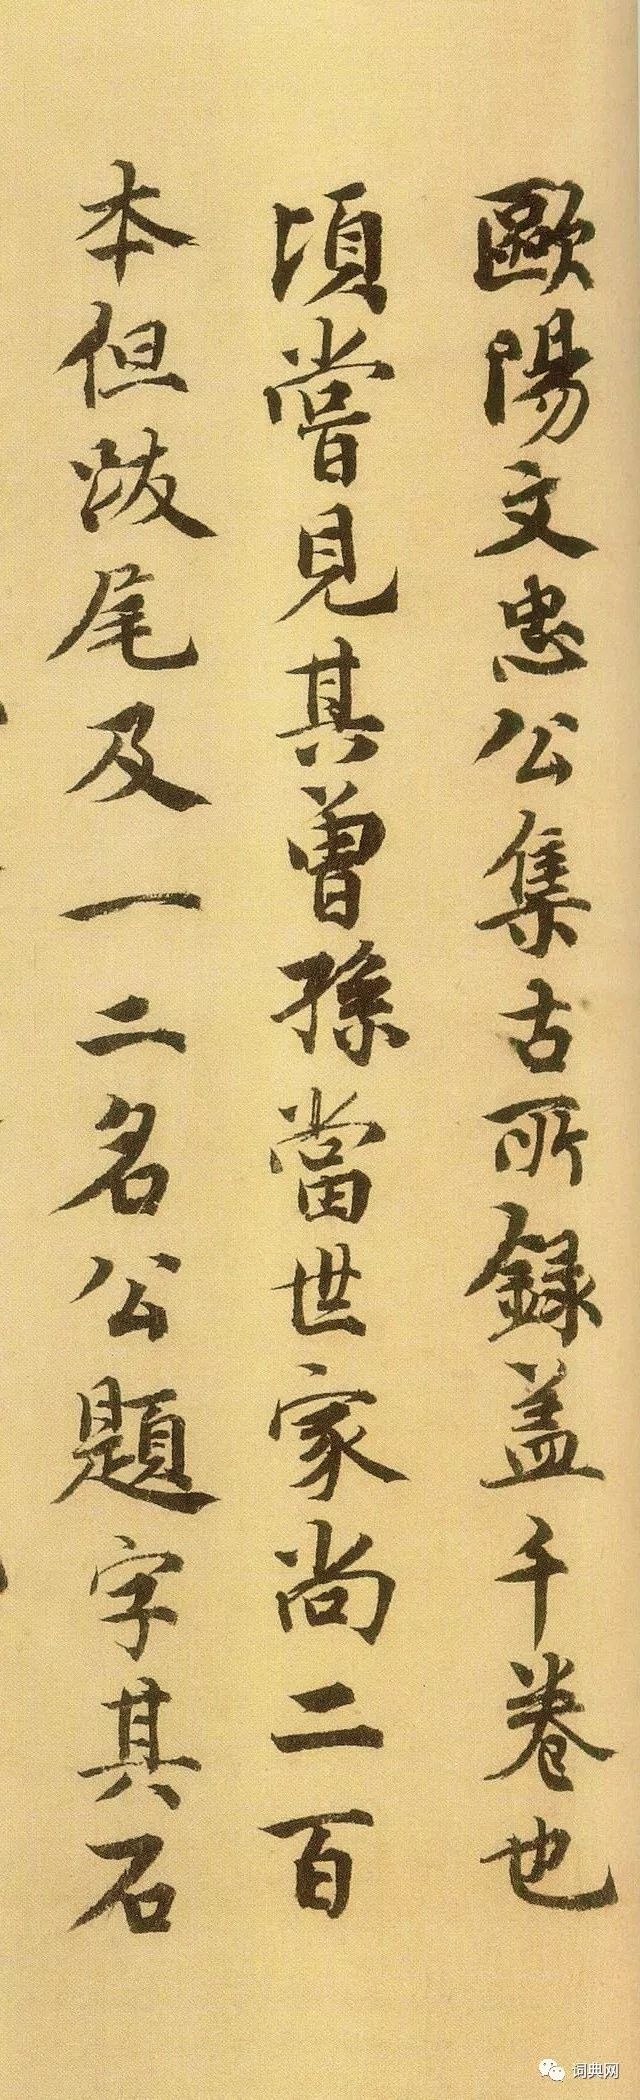 歐陽文忠公集古所錄盖千卷也
頃嘗見其曾孫當世家尚二百
本但跋尾及一二名公題字其石
词典网